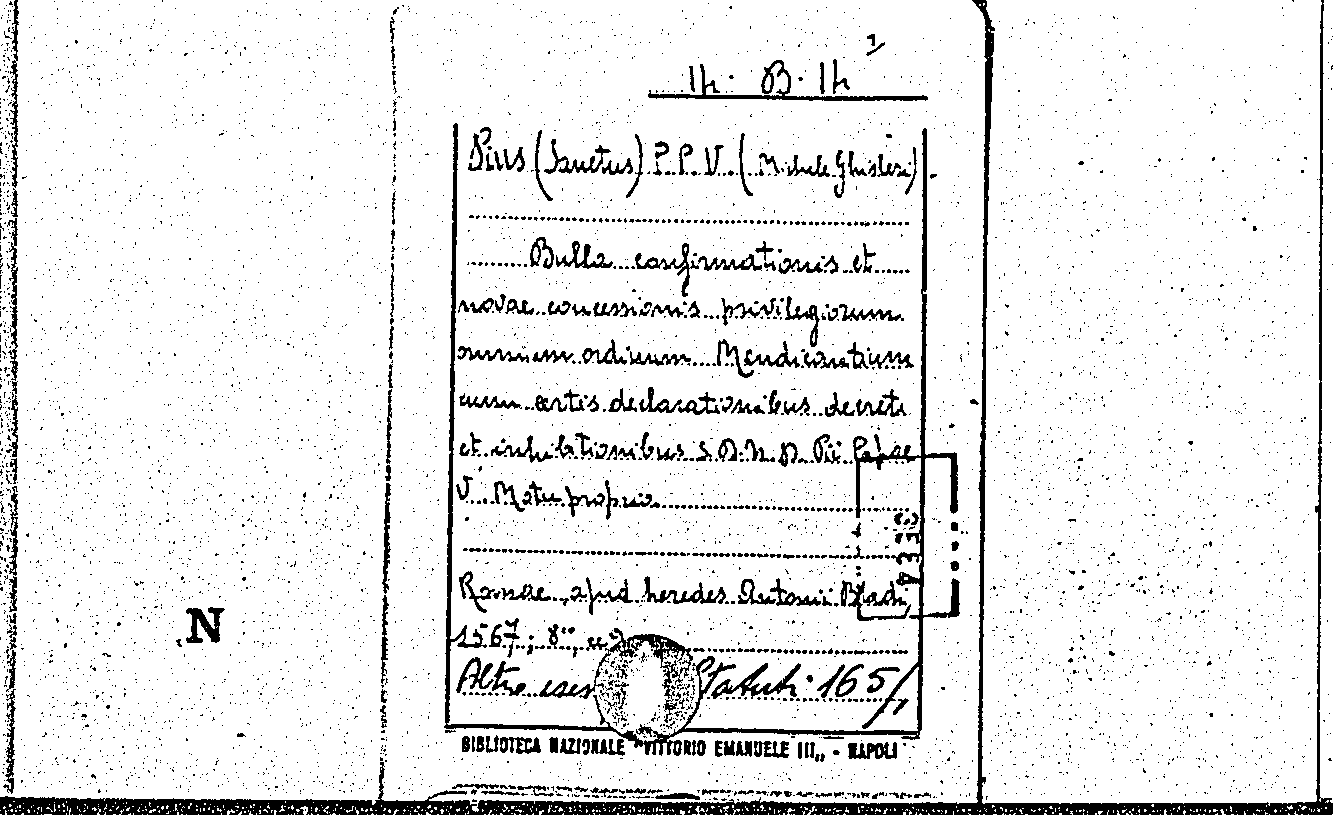 14. B. 14
Pius (Sanctus) P.P. V. (Michele Ghislieri)
Bulla confirmationis et
novae concessionis privilegiorum
omnium ordinum Mendicantium
cum certis declarationibus decretis
et inhibitionibus S. D. N. D. Pii Papae
V. Motu proprio.
Romae, apud heredes Antonii Bladi,
1567; 8°,
Altro Statuti. 165/
BIBLIOTECA NAZIONALE "VITTORIO EMANUELE III„ - NAPOLI
N